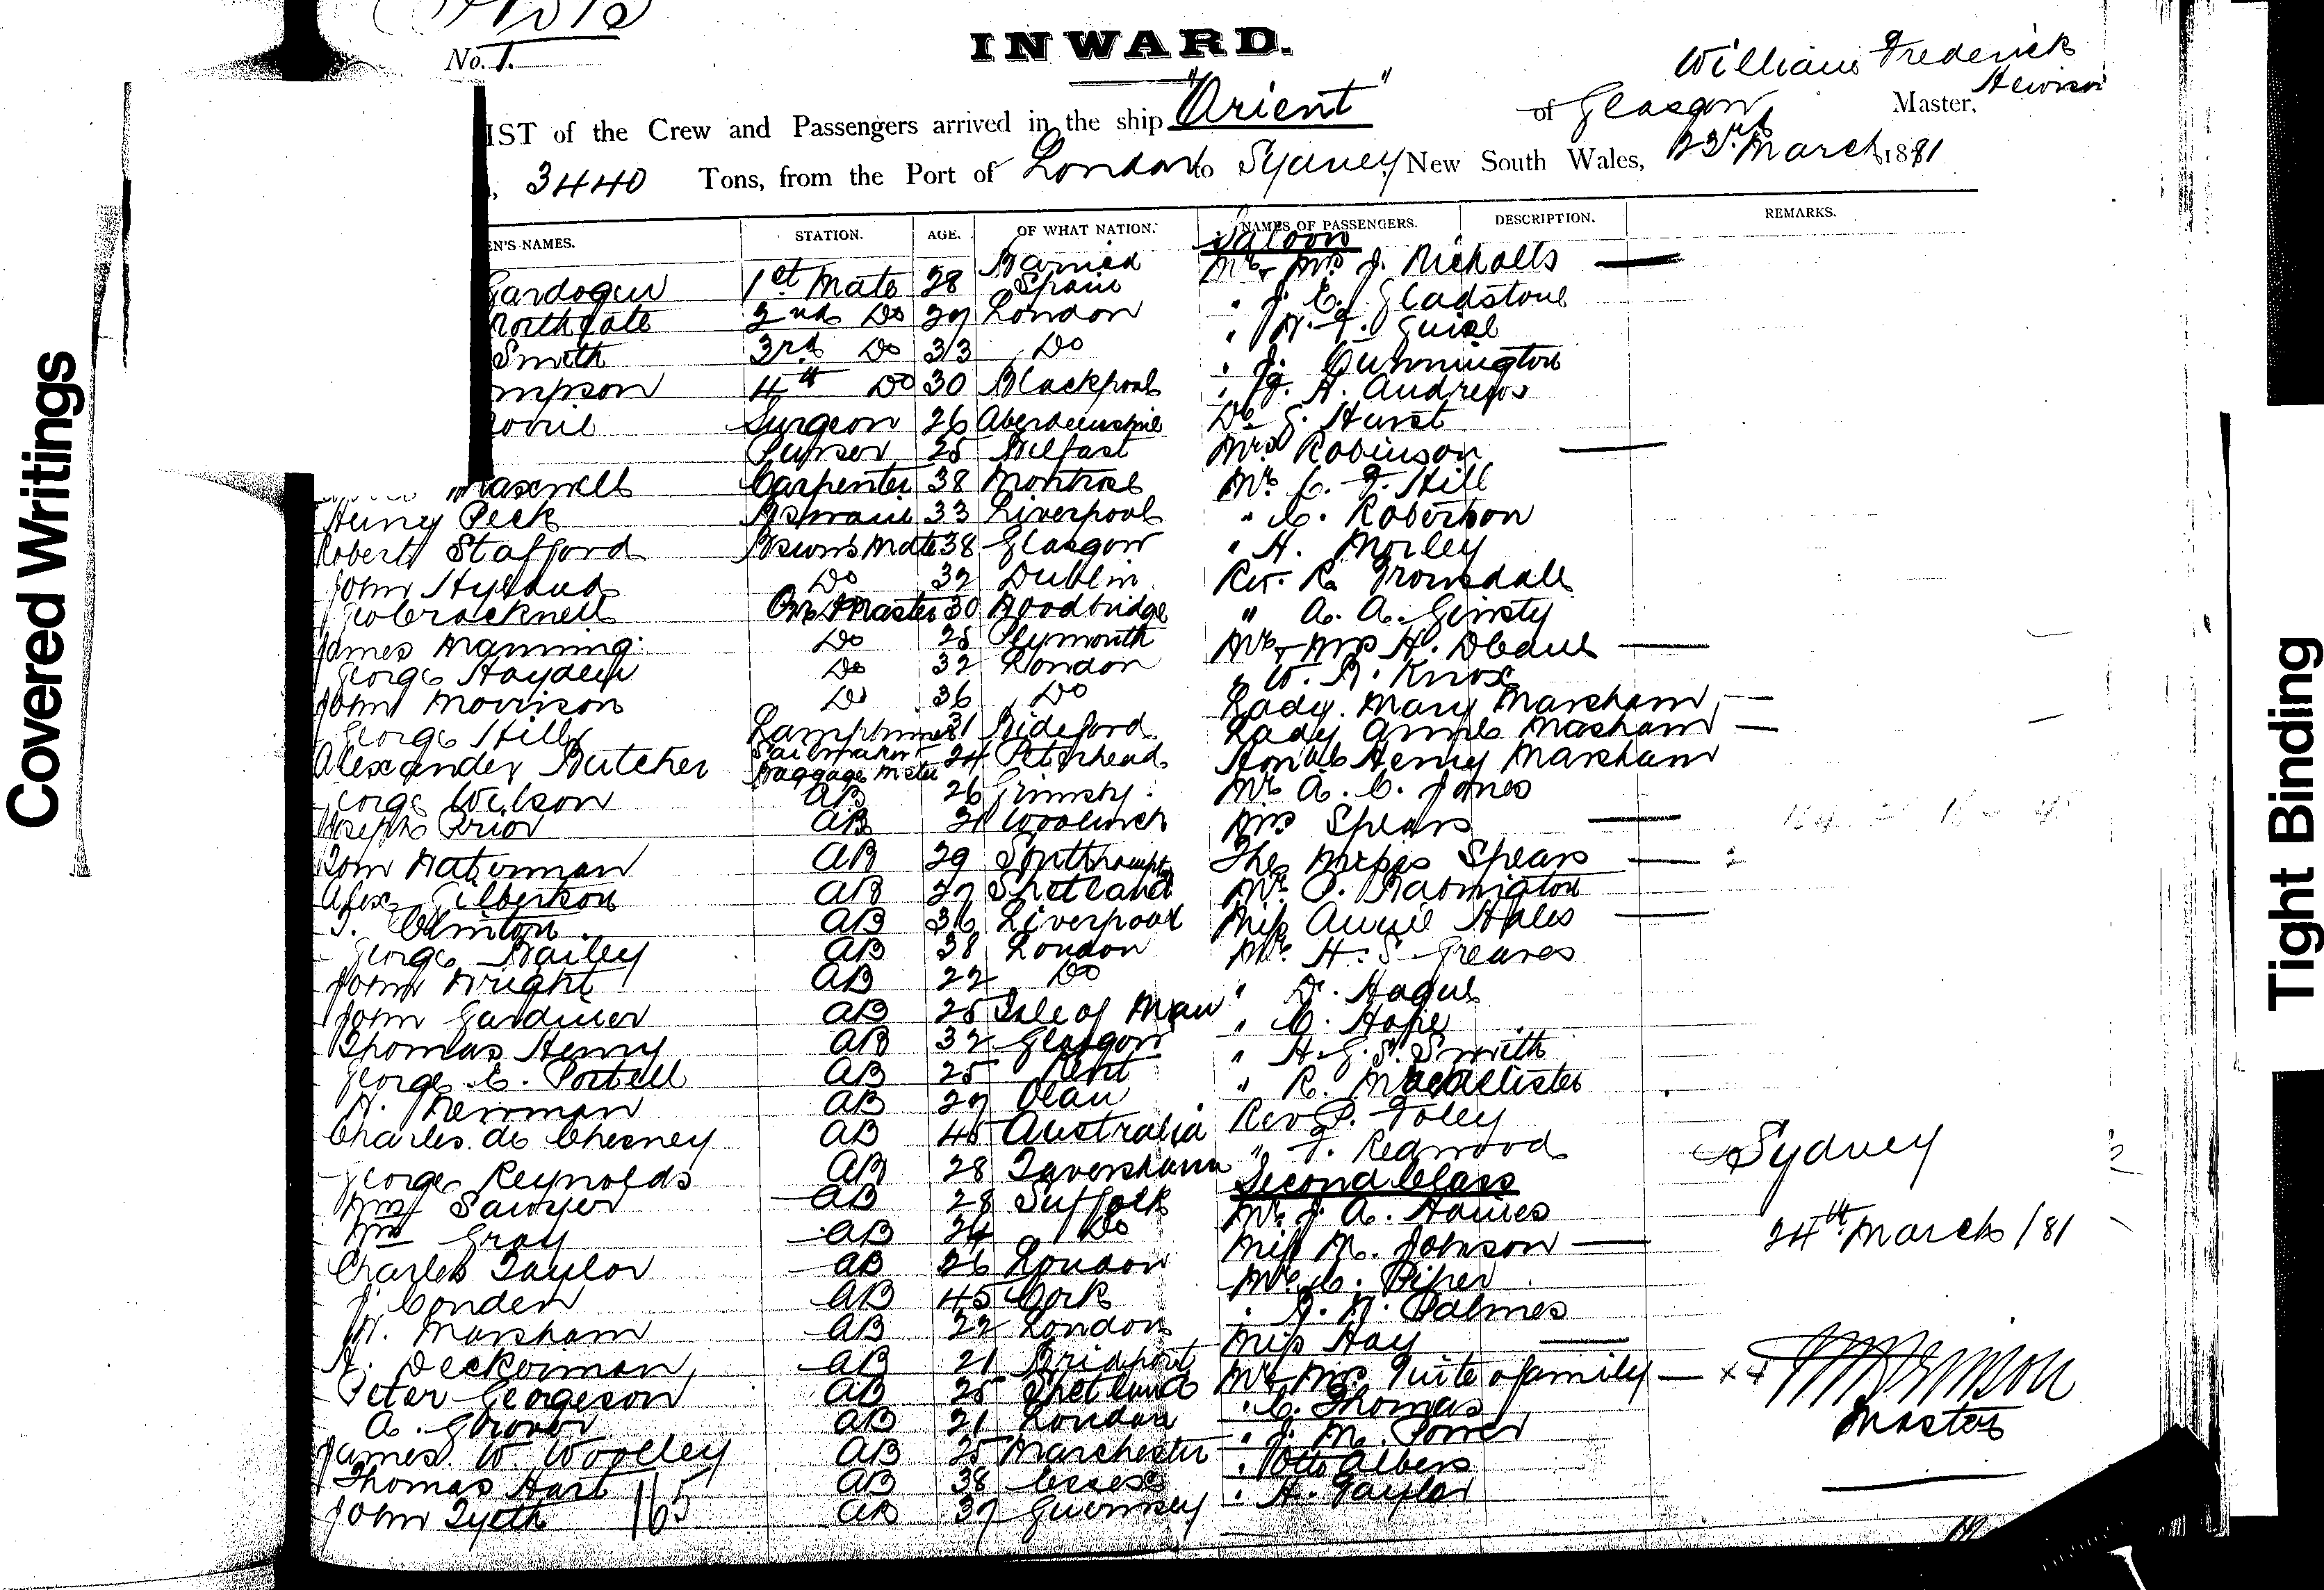 Covered Writings
No. 1.
INWARD.
William Frederick
Hewison
IST of the Crew and Passengers arrived in the ship "Orient" of Glasgow Master,
3440 Tons, from the Port of London to Sydney New South Wales, 23rd March 1881
EN'S NAMES. STATION. AGE. OF WHAT NATION. NAMES OF PASSENGERS. DESCRIPTION. REMARKS.
Saloon
1st Mate 28 Spain Mr & Mrs J. Nicholls
Northgate 2nd Do 27 London " J. C. Gladstone
" Guise
Smith 3rd Do 33 Do " J. Cunnington
mpson 4th Do 30 Blackpool " A. Andrews
Surgeon 26 Aberdeenshire Hurst
Purser 25 Belfast Mrs Robinson
Carpenter 38 Montrose Mr. C. F. Hill
Henry Peck 33 Liverpool " C. Robertson
Robert Stafford Bsuns Mate 38 Glasgow " H. Morley
John Hyland Do 32 Dublin Rev. R.
Cracknell Master 30 Woodbridge " A. A.
James Manning Do 25 Plymouth Mr & Mrs H.
George Hayden Do 32 London " W. R. Knox
John Morrison Do 36 Do Lady Mary Marsham
George Hill 31 Bideford Lady Annie Masham
Alexander Butcher Sailmaker & Baggage Mster 24 Peterhead Henry Marsham
George Wilson AB 26 Grimsby Mr A. C. Jones
Joseph Prior AB Woolwich Mrs Spears
Tom Waterman AB 29 Southampton The Misses Spears
Alex Gilbertson AB 27 Shetland Mr.
T. Clinton AB 36 Liverpool Miss Annie Hales
George Bailey AB 38 London Mr. H. S. Greaves
John Wright AB 22 Do " Hague
John Gardiner AB 25 Isle of Man " C. Hope
Thomas Henry AB 32 Glasgow " H. G. S. Smith
George C. Portell AB 25 Kent " R. MacAllister
Newman AB 27 Rev P. Foley
Charles de Chesney AB 45 Australia " F. Redwood
George Reynolds AB 28 Faversham Second Class
Wm Sawyer AB 28 Suffolk Mr J. A.
Wm Gray AB 24 Do Miss M. Johnson
Charles Taylor AB 26 London Mr C. Piper
J. Conden AB 45 Cork " Palmes
W. Marsham AB 22 London Miss Hay
Deckerman AB 21 Bridport Mr & Mrs Tuite & family
Peter Georgeson AB 25 Shetland " C. Thomas
A. Grover AB 21 London " J. M. Power
James W. Woolley AB 25 Manchester " Otto Albers
Thomas Hart AB 38 Essex " H. Taylor
John 165 AB 37 Guernsey
Sydney
24th March /81
Master
Tight Binding